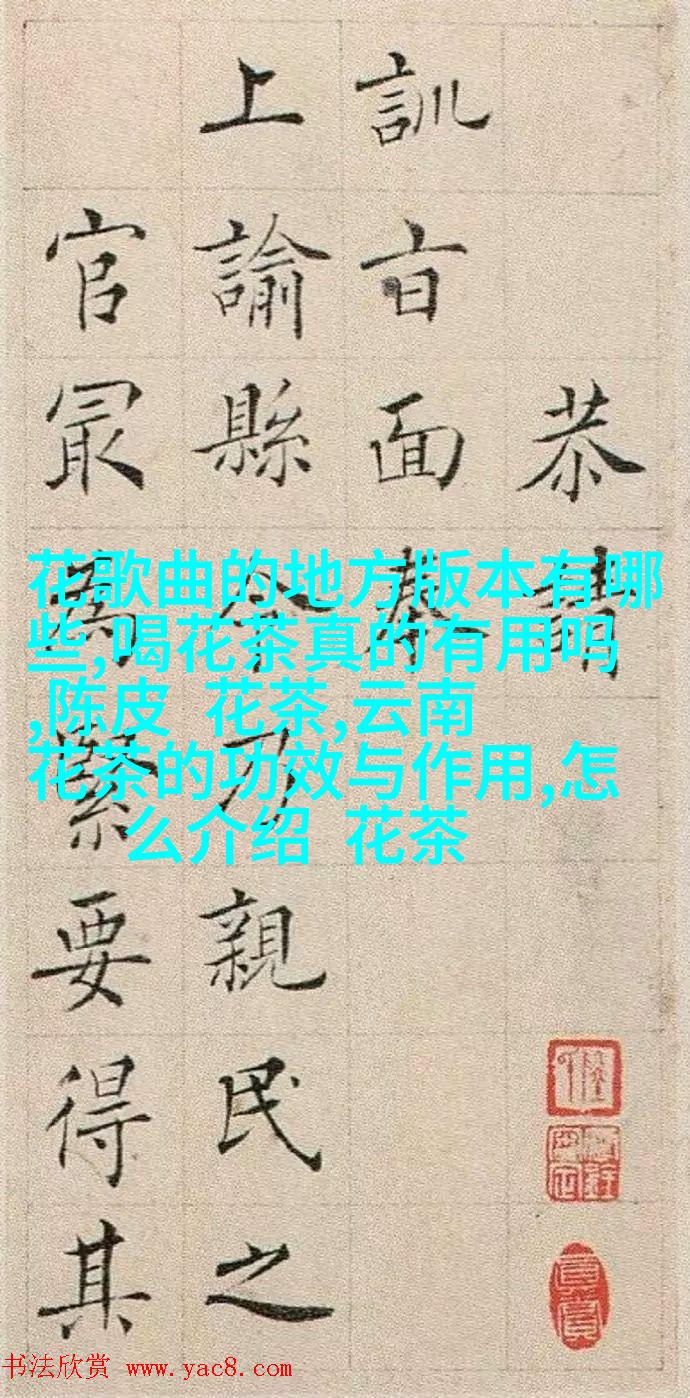 恭請
訓旨面奏
上諭縣令乃親民之
官冣爲緊要得其
花歌曲的地方版本有哪
些,喝花茶真的有用吗
,陈皮 花茶,云南
花茶的功效与作用,怎
么介绍 花茶
书法欣赏 www.yac8.com